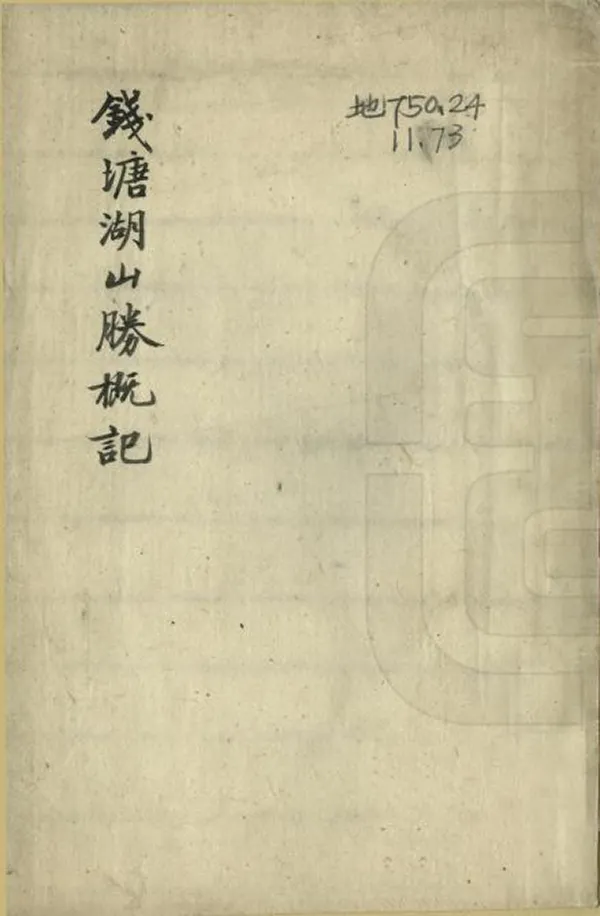 錢塘湖山勝概記
地750.24
11.73